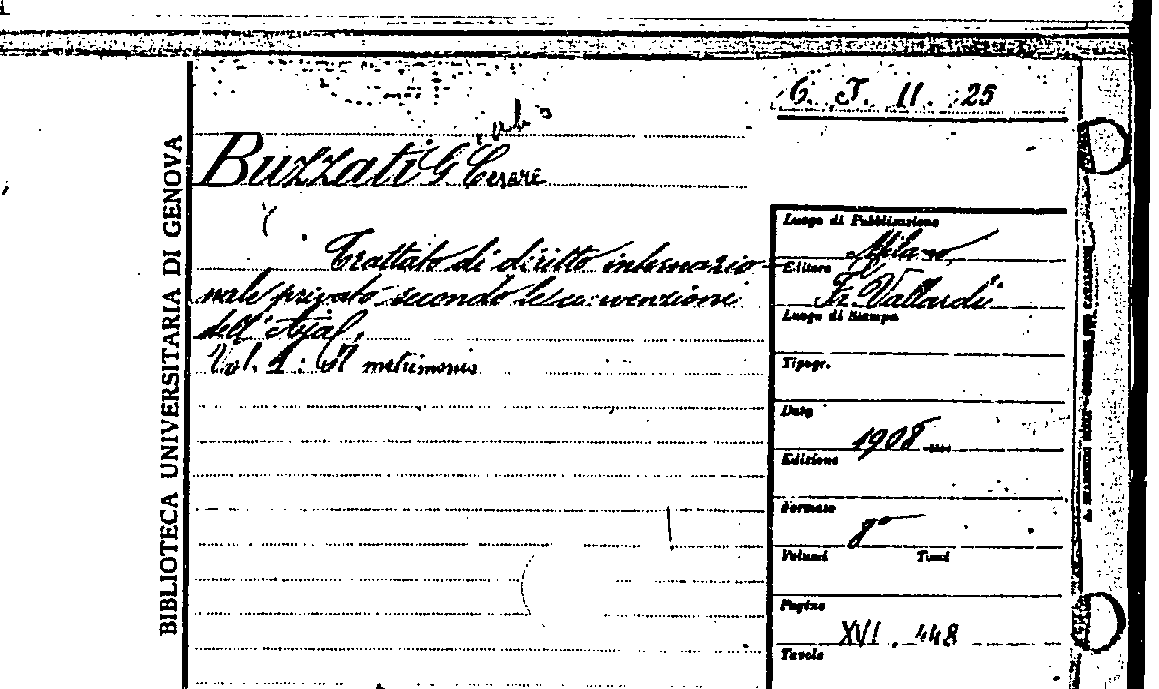 6. J. 11. 25
BIBLIOTECA UNIVERSITARIA DI GENOVA
Buzzati G. Cesare
Trattato di diritto internazio-
nale privato secondo le convenzioni
dell'Aja.
Vol. 1: Il matrimonio
Luogo di Pubblicazione
Milano
Editore
Fr. Vallardi
Luogo di Stampa
Tipogr.
Data
1908
Edizione
Formato
8°
Volumi Tomi
Pagine
XVI. 448
Tavole